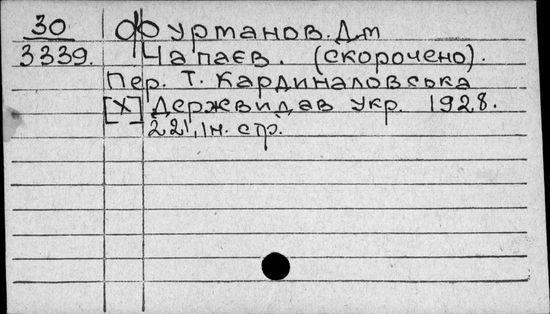 30 Фурманов. Дм
3339. Чапаєв. (скорочено).
Пер. Т. Кардиналовська
[X] Держвидав Укр. 1928.
221, Iн. стр.